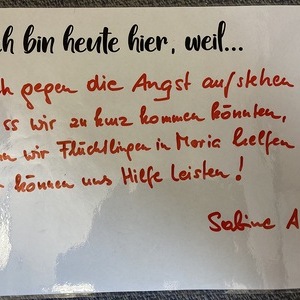 ch bin heute hier, weil...
ch gegen die Angst aufstehen
ss wir zu kurz kommen könnten,
nn wir Flüchtlingen in Moria helfen
können uns Hilfe leisten!
Sabine A